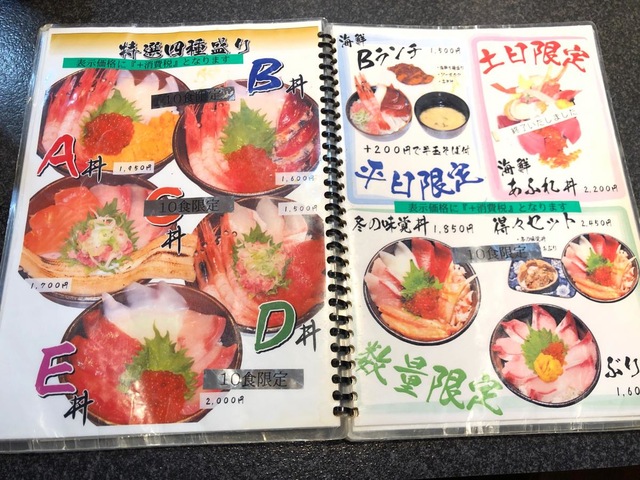 特選四種盛り
表示価格に『+消費税』となります
A丼
1,950円
10食限定
B丼
1,600円
C丼
10食限定
1,700円
1,500円
D丼
E丼
10食限定
2,000円
海鮮
Bランチ 1,500円
+200円で半玉そば付
平日限定
土日限定
終了いたしました
海鮮
あふれ丼
2,200円
表示価格に『+消費税』となります
冬の味覚丼 1,850円
得々セット 2,450円
・冬の味覚丼
10食限定
数量限定
ぶり